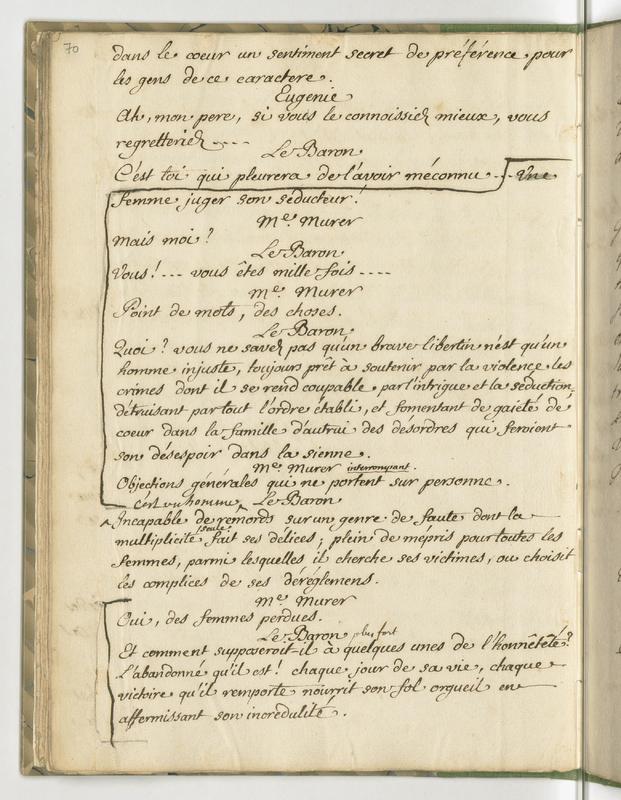 70
dans le coeur un sentiment secret de préférence pour
les gens de ce caractere.
Eugenie
Ah, mon pere, si vous le connoissiez mieux, vous
regretteriez ----
Le Baron
C'est toi qui pleurera de l'avoir méconnu -- Une
femme juger son séducteur!
Me. Murer
Mais moi?
Le Baron
Vous! --- vous êtes mille fois ----
Me. Murer
Point de mots, des choses.
Le Baron
Quoi? vous ne savez pas qu'un brave libertin n'est qu'un
homme injuste, toujours prêt à soutenir par la violence les
crimes dont il se rend coupable par l'intrigue et la séduction,
détruisant partout l'ordre établi, et fomentant de gaieté de
coeur dans la famille d'autrui des désordres qui feroient
son désespoir dans la sienne.
Me. Murer interrompant.
Objections générales qui ne portent sur personne.
c'est un homme Le Baron
Incapable de remords sur un genre de faute dont la
multiplicité seule fait ses délices; plein de mépris pour toutes les
femmes, parmi lesquelles il cherche ses victimes, ou choisit
les complices de ses déréglemens.
Me. Murer
Oui, des femmes perdues.
Le Baron plus fort
Et comment supposeroit-il à quelques unes de l'honnêteté?
L'abandonné qu'il est! chaque jour de sa vie, chaque
victoire qu'il remporte nourrit son fol orgueil en
affermissant son incrédulité.